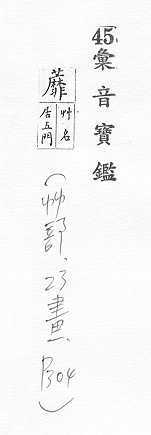 (45)彙音寶鑑
蘼
艸名
居五門
(艸部, 23畫, P304)